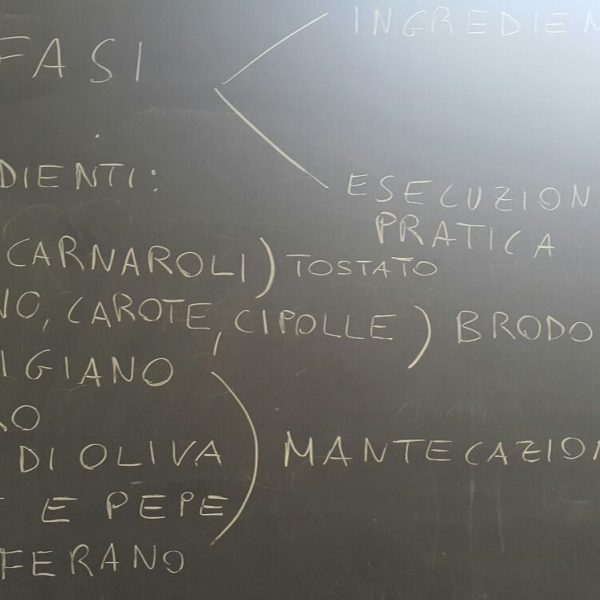 INGREDIEN
FASI
DIENTI:
ESECUZION
PRATICA
CARNAROLI) TOSTATO
NO, CAROTE, CIPOLLE) BRODO
IGIANO
RO
DI OLIVA ) MANTECAZION
E E PEPE
FERANO